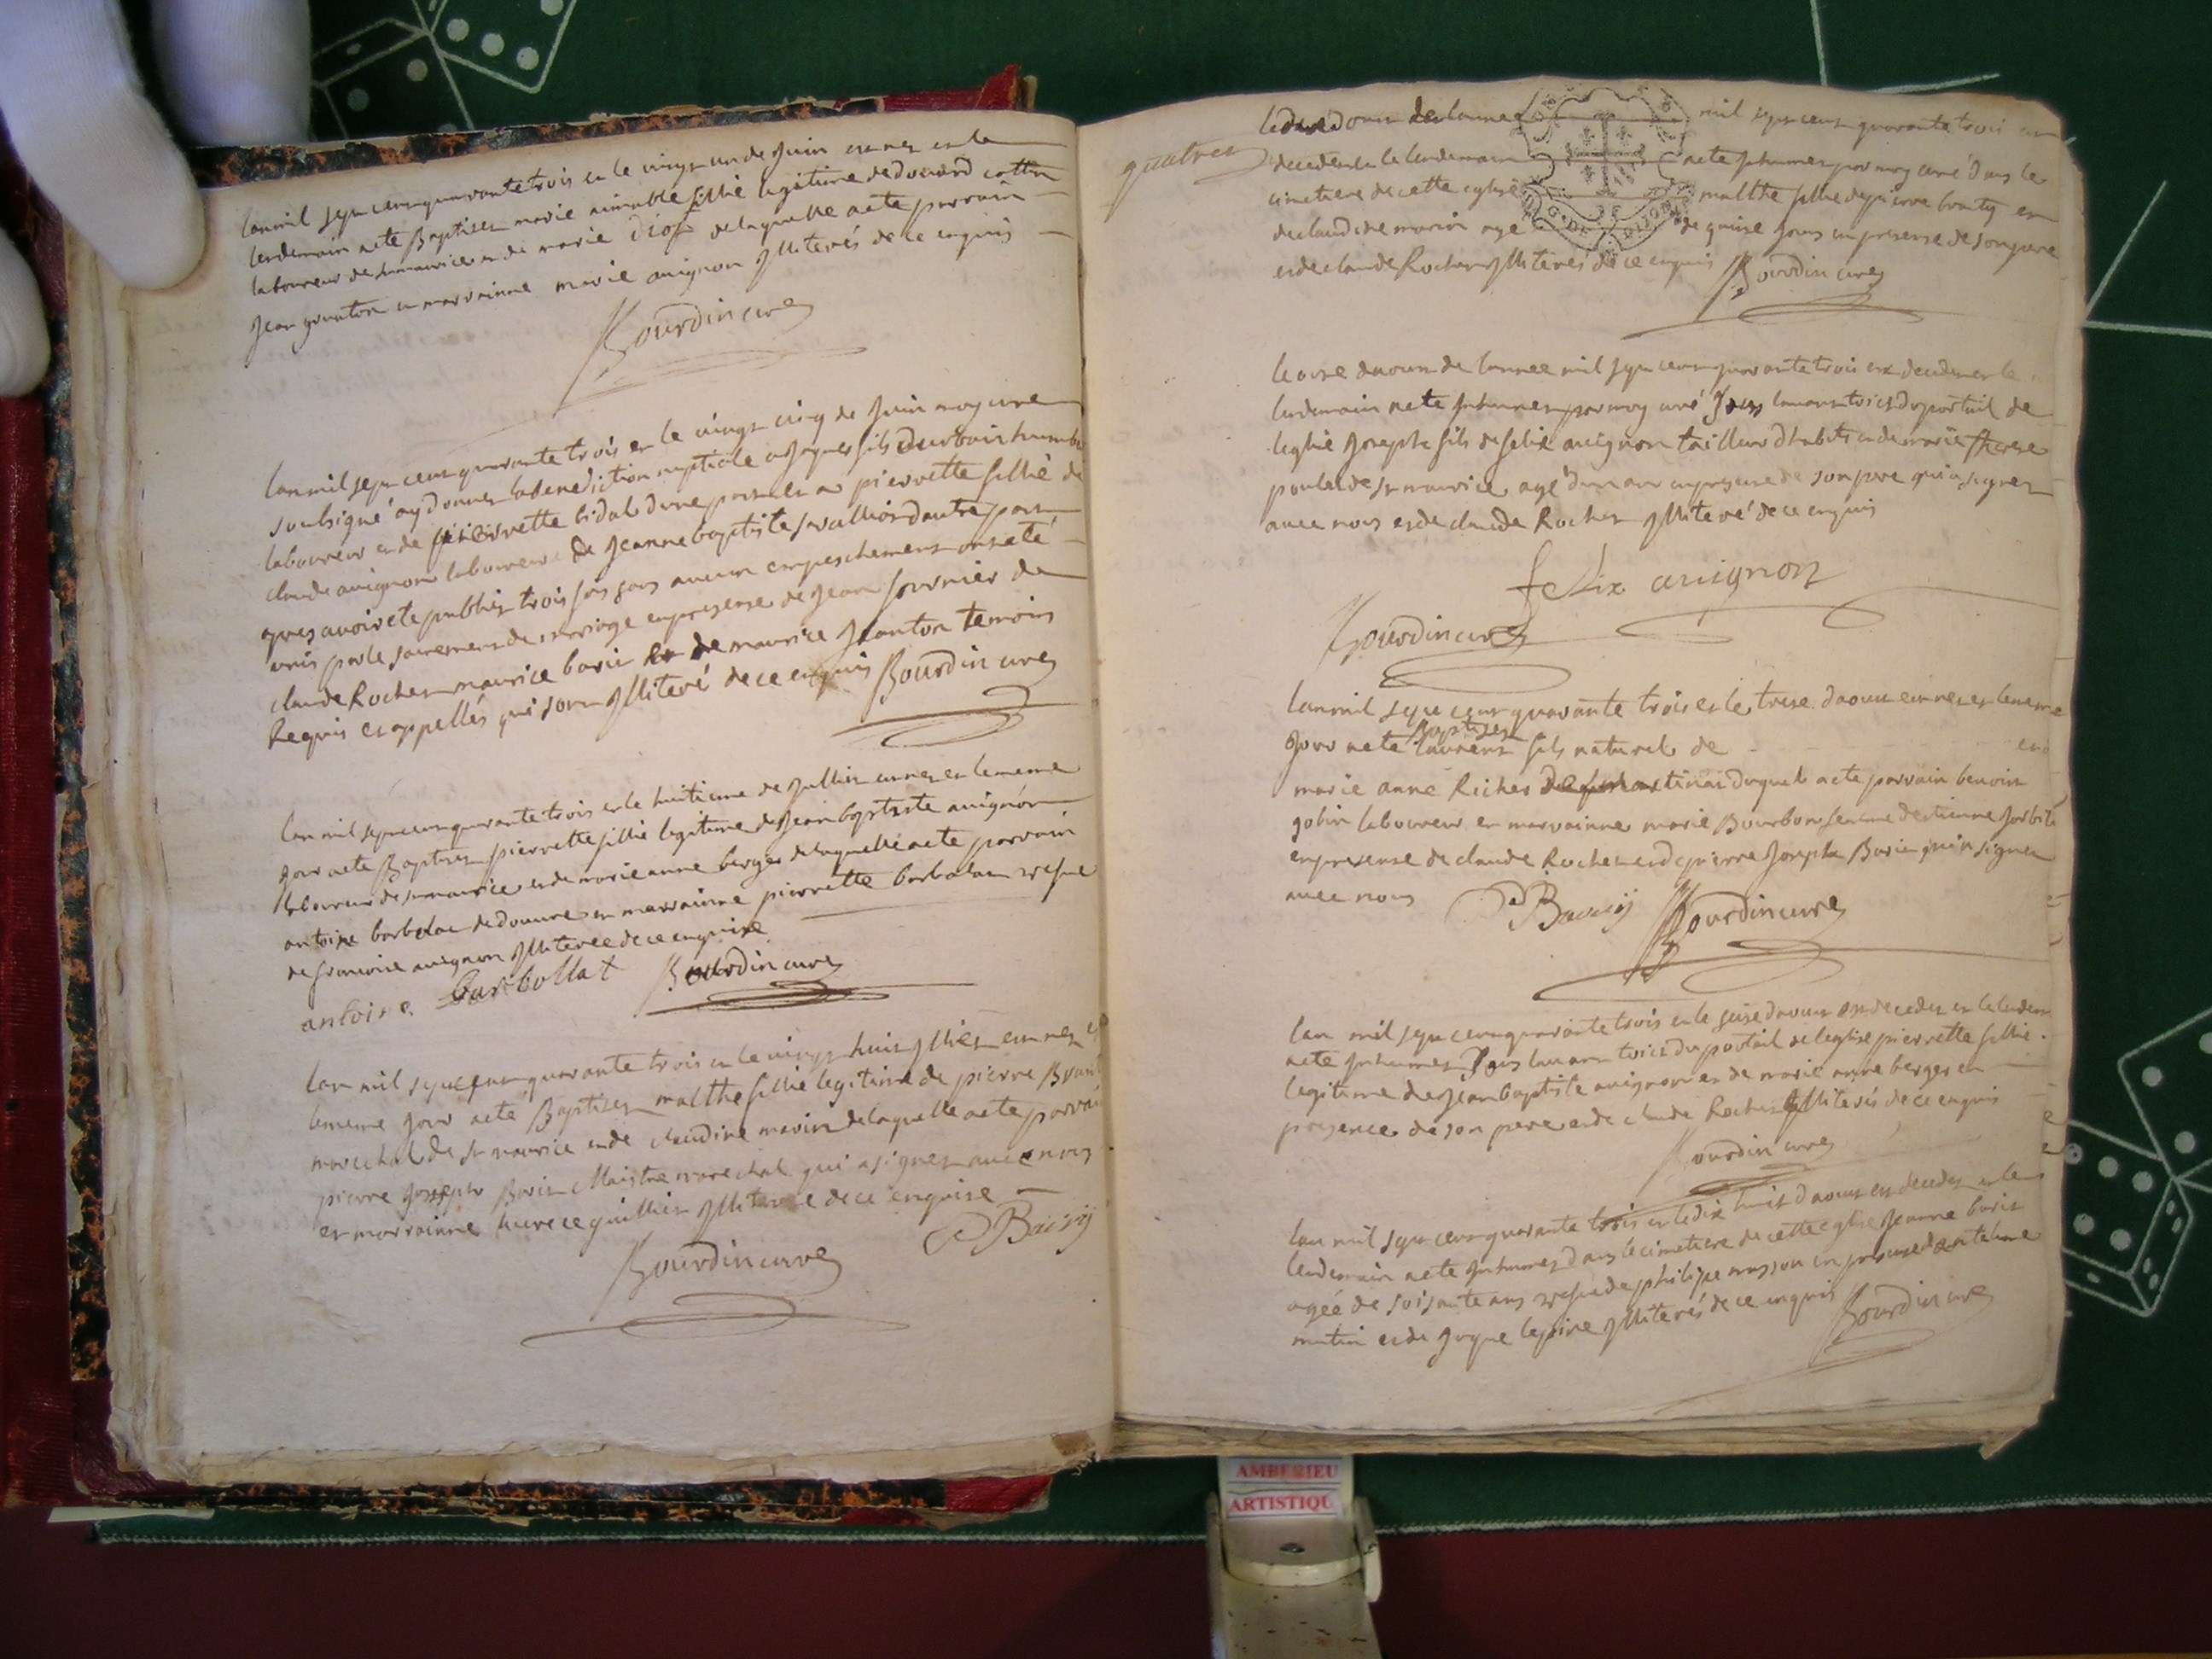 lan mil sept cent quarante trois et le vingt un de Juin est nez et le
lendemain a ete Baptisez marie aimable fillie legitime dedouard cottin
laboureur de st maurice et de marie diof de laquelle a ete parrain
Jean granton et marrainne marie auignon Jlliterés de ce enquis
Bourdin curez
lan mil sept cent quarante trois et le vingt cinq de Juin moy cure
soubsigné ay donnez la benediction nuptiale a Jaques fils durbain humbe
laboureur et de pierrette bidal dune part et a pierrette fillie de
claude auignon laboureur de Jeanne baptiste dautre part
apres auoir ete publiez trois fois sans aucun empeschement ont eté
unis par le sacrement de mariage en presense de Jean fournier de
claude Rochet maurice barie et de maurice Jeanton temoins
Requis et appellés qui sont Jlliterés de ce enquis Bourdin curez
lan mil sept cent quarante trois et le huitieme de Jullet est nez et le meme
jour a ete Baptisez pierrette fillie legitime de Jean baptiste auignon
laboureur de st maurice et de marie anne berger de laquelle a ete parrain
antoine barbolat de douure et marrainne pierrette barbolat vesue
de francoise auignon Jlliteree de ce enquise
antoine barbollat Bourdin curez
lan mil sept cent quarante trois et le vingt huit Jlliet est nez et
le meme jour a eté Baptisez malthe fillie legitime de pierre
marechal de st maurice et de claudine marin de laquelle a ete parrain
pierre Joseph Barie Maistre marechal qui a signez auec nous
et marrainne lucrece guilliet Jlliteree de ce enquise
P Bariy
Bourdin curez
quatres
le daoust de lannee mil sept cent quarante trois est
decedez et le lendemain a ete Jnhumez par moy curé dans le
cimetiere de cette eglise malthe fillie de pierre et
de claudine marin age de quinse jours en presense de son pere
et de claude Rochet Jlliterés de ce enquis Bourdin curez
le onse daoust de lannee mil sept cent quarante trois est decedez et le
lendemain a ete Jnhumez par moy curé sous lauant toict du portail de
leglise Joseph fils de felix auignon tailleur dhabits et de marie therese
poulat de st maurice agé dun an en presense de son pere qui a signez
auec nous et de claude Rochet Jlliteré de ce enquis
felix auignon
Bourdin curez
lan mil sept cent quarante trois et le trese daoust est nez et le meme
Jour a ete Baptisez laurent fils naturel de et de
marie anne Richer duquel a ete parrain benoit
gobin laboureur et marrainne marie Bourbon femme destienne
en presense de claude Rochet et de pierre Joseph Barie qui a signez
auec nous P Bariy Bourdin curez
lan mil sept cent quarante trois et le seise daoust est decedez et le lendem
a ete Jnhumez sous lauant toict du portail de leglise pierrette fillie
legitime de Jean baptiste auignon et de marie anne berger en
presence de son pere et de claude Rochet Jlliterés de ce enquis
Bourdin curez
lan mil sept cent quarante trois et le dix huit daoust est decedez et le
lendemain a ete Jnhumez dans le cimetiere de cette eglise Jeanne barie
agée de soisante ans vesue de philipe masson en presense dantelme
mutin et de Jaque lepine Jlliterés de ce enquis Bourdin curez
AMBERIEU
ARTISTIQU